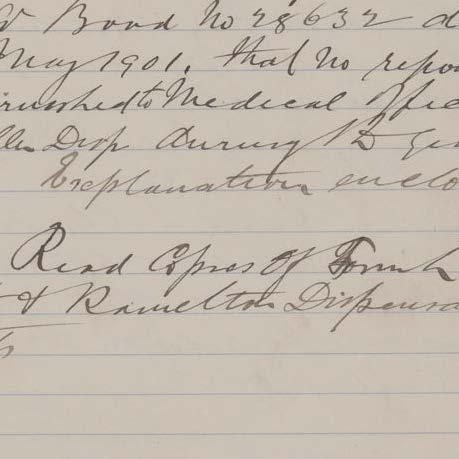 Bond No 28632 d
May 1901. that no repor
urnished to Medical Offic
Disp during
Explanation enclo
Read Copies of
& Ramelton Dispensa